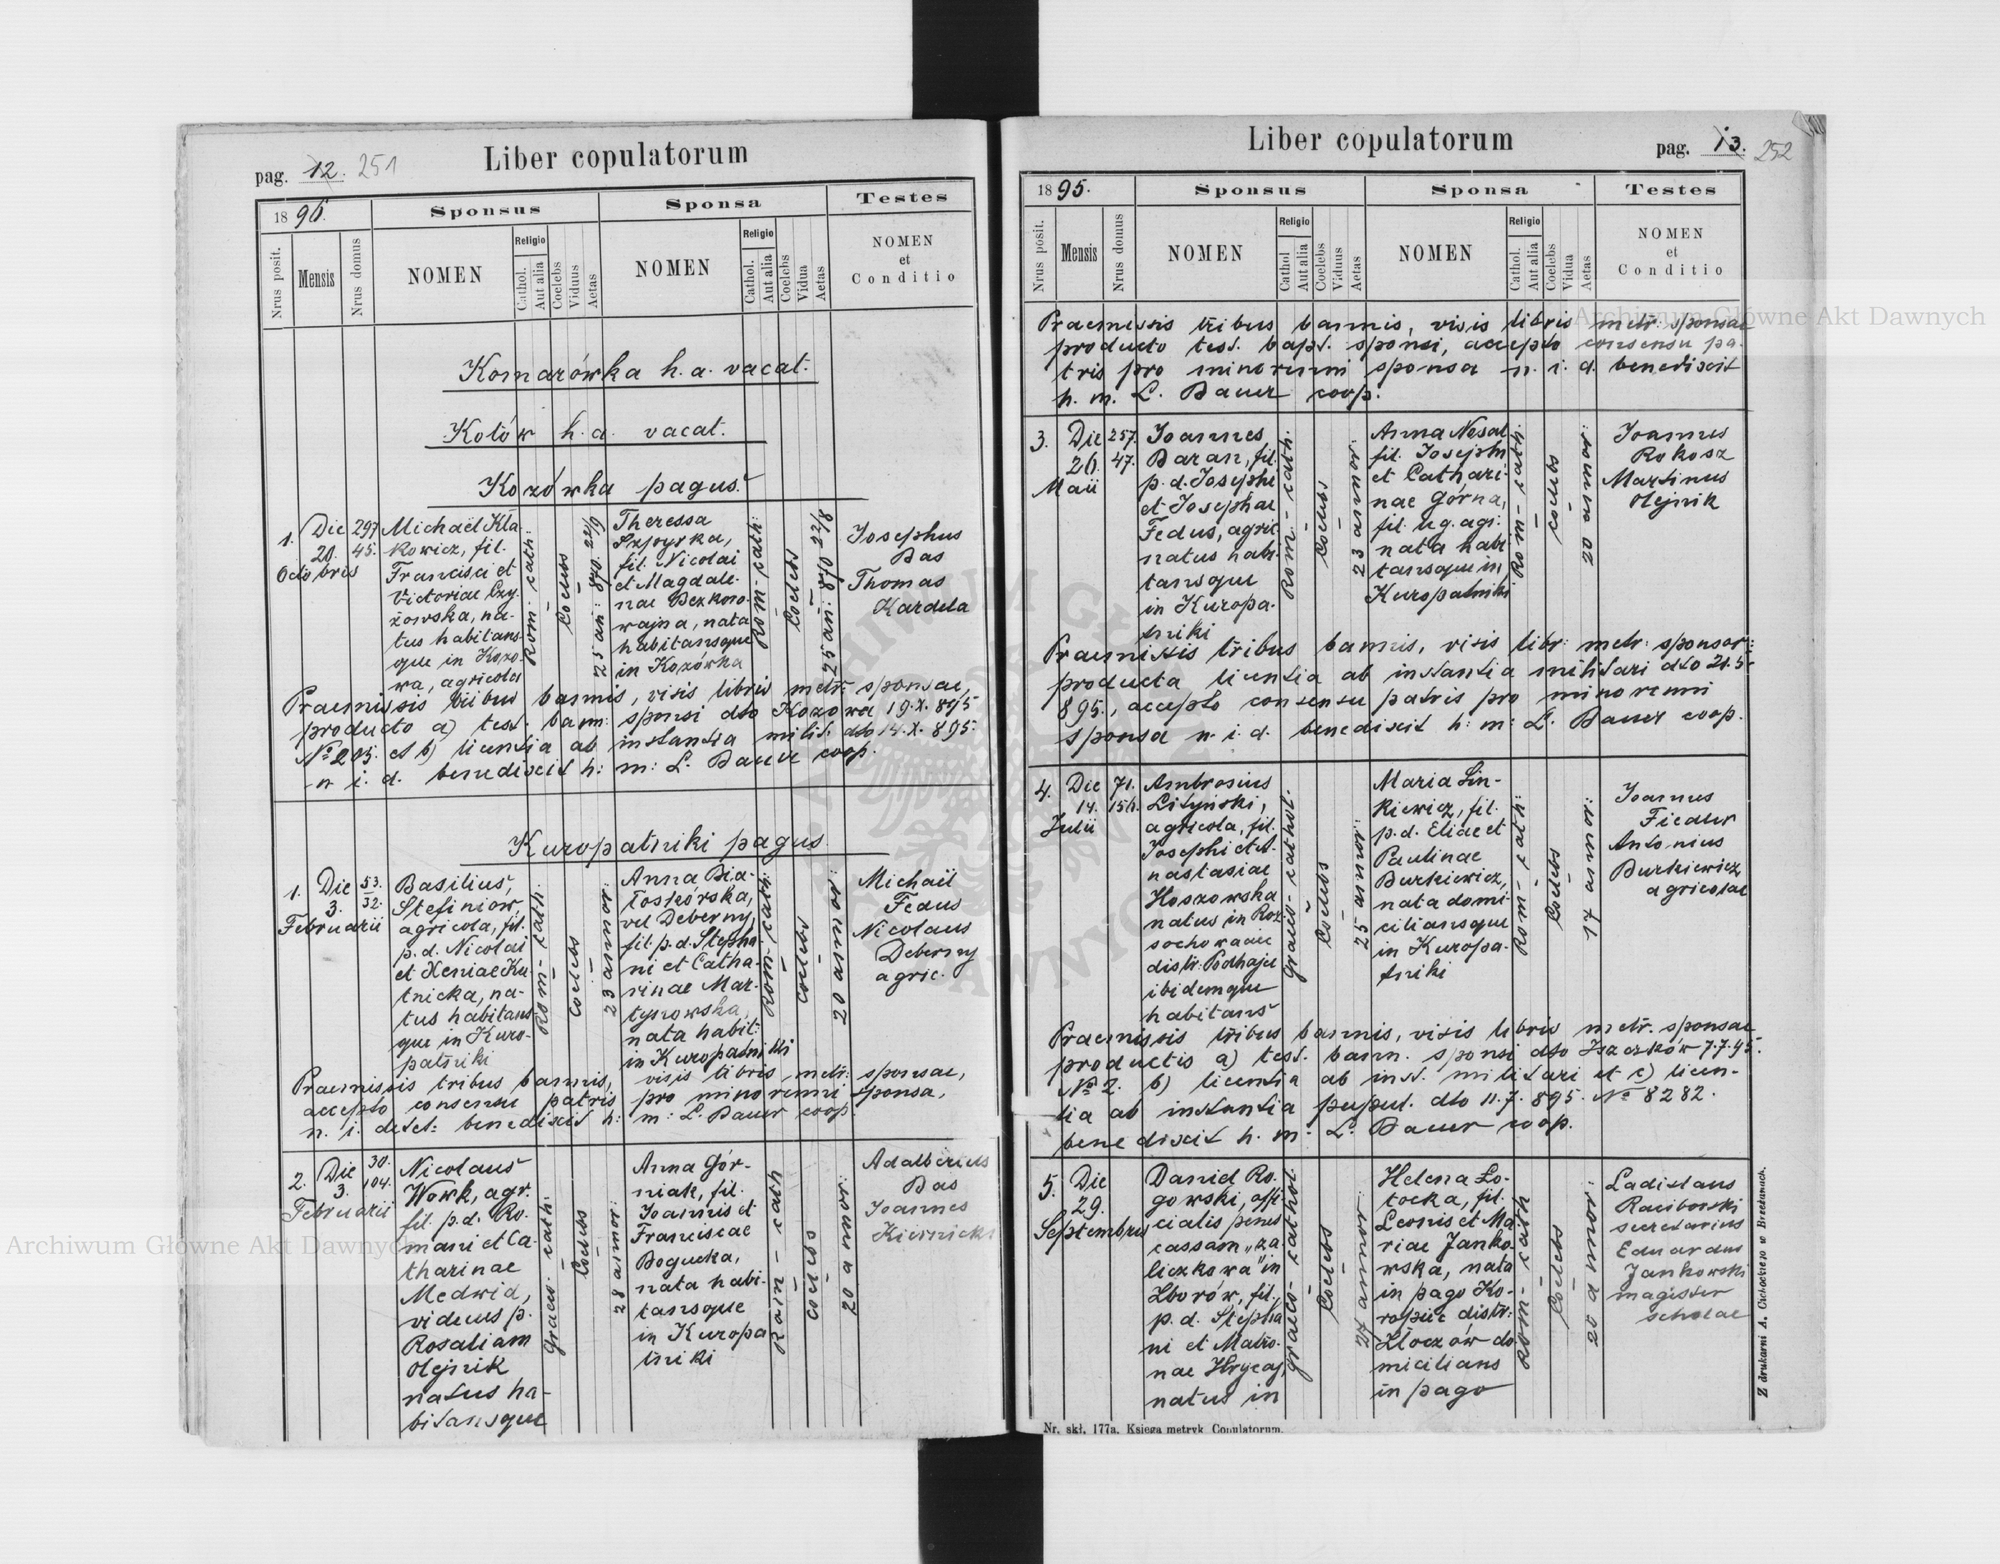 Liber copulatorum
pag. 12. 251
1895.
Sponsus
Sponsa
Testes
Nrus posit.
Mensis
Nrus domus
NOMEN
Religio
Cathol.
Aut alia
Coelebs
Viduus
Aetas
NOMEN
Religio
Cathol.
Aut alia
Coelebs
Vidua
Aetas
NOMEN
et
Conditio
Komarówka h. a. vacat.
Kotów h. a. vacat.
Kozówka pagus.
1.
Die
20.
Octobris
297
45.
Michaël Kla-
kowicz, fil.
Francisci et
Victoriae Czy-
żowska, na-
tus habitans-
que in Kozo-
wa, agricola
Rom: cath:
Coelebs
25 an: 870. 22/9
Theressa
Szpyrka,
fil. Nicolai
et Magdale-
nae Bezkoro-
wajna, nata
habitansque
in Kozówka
Rom-cath:
Coelebs
25 an: 870 22/8
Josephus
Bas
Thomas
Kardela
Praemissis tribus bannis, visis libris metr: sponsae,
producto a) test. bann: sponsi dto Kozowa 19.X.895
No 205. et b) licentia ab instantia milit: dto 14.X.895.
n. i. d. benedixit h: m: L. Bauer coop.
Kuropatniki pagus.
1.
Die
3.
Februarii
53.
32.
Basilius
Stefiniow,
agricola, fil.
p. d. Nicolai
et Xeniae Ku-
tnicka, na-
tus habitans-
que in Kuro-
patniki
Rom-cath:
Coelebs
23 annor:
Anna Bia-
łoskórska,
vel Deberny,
fil. p. d. Stepha-
ni et Catha-
rinae Mar-
tynowska,
nata habit:
in Kuropatniki
Rom-cath:
Coelebs
20 annor:
Michaël
Fedus
Nicolaus
Deberny
agric.
Praemissis tribus bannis, visis libris metr: sponsae,
accepto consensu patris pro minorenni sponsa,
n. i. detet: benedixit h: m: L. Bauer coop.
2.
Die
3.
Februarii
30.
104.
Nicolaus
Wowk, agr.
fil. p. d. Ro-
mani et Ca-
tharinae
Medwid,
viduus p.
Rosaliam
Olejnik
natus ha-
bitansque
Graeco cath:
Coelebs
28 annor:
Anna Gór-
niak, fil.
Joannis et
Franciscae
Bogucka,
nata habi-
tansque
in Kuropa-
tniki
Rom-cath
Coelebs
20 annor:
Adalbertus
Bas
Joannes
Kiernicki
Liber copulatorum
pag. 13. 252
1895.
Sponsus
Sponsa
Testes
Nrus posit.
Mensis
Nrus domus
NOMEN
Religio
Cathol
Aut alia
Coelebs
Viduus
Aetas
NOMEN
Religio
Cathol.
Aut alia
Coelebs
Vidua
Aetas
NOMEN
et
Conditio
Praemissis tribus bannis, visis libris metr: sponsae
producto test. bapt. sponsi, accepto consensu pa-
tris pro minorenni sponsa n. i. d. benedixit
h. m. L. Bauer coop.
3.
Die
26.
Maii
257.
47.
Joannes
Baran, fil.
p. d. Josephi
et Josephae
Fedus, agric.
natus habi-
tansque
in Kuropa-
tniki
Rom-cath:
Coelebs
23 annor:
Anna Nosal
fil. Josephi
et Cathari-
nae Górna,
fil. leg. agr:
nata habi-
tansque in
Kuropatniki
Rom-cath:
Coelebs
20 annor:
Joannes
Rokosz
Martinus
Olejnik
Praemissis tribus bannis, visis libr: metr: sponsor:
producta licentia ab instantia militari dto 21.5.
895., accepto consensu patris pro minorenni
sponsa n. i. d. benedixit h: m: L. Bauer coop.
4.
Die
14.
Julii
71.
156.
Ambrosius
Lityński,
agricola, fil.
Josephi et A-
nastasiae
Hoszowska
natus in Roz-
sochowaciec
distr: Podhajce
ibidemque
habitans
Graeco-cathol.
Coelebs
25 annor:
Maria Sin-
kiewicz, fil.
p. d. Eliae et
Paulinae
Burkiewicz,
nata domi-
ciliansque
in Kuropa-
tniki
Rom-cath:
Coelebs
17 annor:
Joannes
Fiedur
Antonius
Burkiewicz
agricolae
Praemissis tribus bannis, visis libris metr. sponsae
productis a) test. bann. sponsi dto Iszczków 7.7.95.
No 2. b) licentia ab inst. militari et c) licen-
tia ab instantia pupul. dto 11.7.895. No 8282.
benedixit h. m. L. Bauer coop.
5.
Die
29.
Septembris
Daniel Ro-
gowski, offi-
cialis penes
cassam „za-
liczkowa" in
Zborów, fil.
p. d. Stepha-
ni et Matro-
nae Hrycaj,
natus in
graeco-cathol.
Coelebs
27 annor:
Helena Ło-
tocka, fil.
Leonis et Ma-
riae Janko-
wska, nata
in pago Ko-
ropiec distr:
Złoczów do-
micilians
in pago
Rom-cath
Coelebs
20 annor:
Ladislaus
Raciborski
secretarius
Eduardus
Jankowski
magister
scholae
Z drukarni A. Cichockiego w Brzeżanach.
Nr. skł. 177a. Księga metryk Copulatorum.
Archiwum Główne Akt Dawnych
Archiwum Główne Akt Dawnych